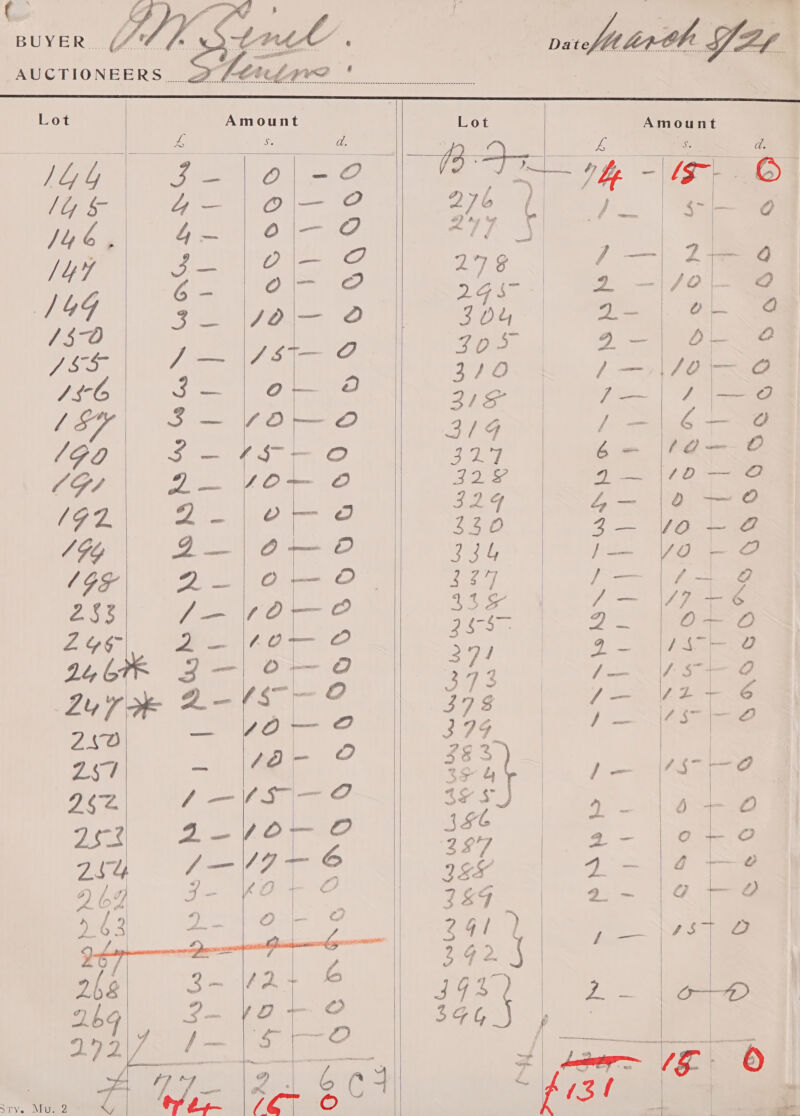 BUYER
Date March 8/21
AUCTIONEERS Stevens
Lot Amount
£ s. d.
144 3 - 0 - 0
145 4 - 0 - 0
146. 4 - 0 - 0
147 3 - 0 - 0
149 6 - 0 - 0
150 3 - 10 - 0
155 1 - 15 - 0
156 3 - 0 - 0
187 3 - 10 - 0
190 3 - 15 - 0
191 2 - 10 - 0
192 2 - 0 - 0
194 2 - 0 - 0
198 2 - 0 - 0
233 1 - 10 - 0
245 2 - 10 - 0
246* 3 - 0 - 0
247* 2 - 15 - 0
250 - 10 - 0
251 - 10 - 0
252 1 - 15 - 0
253 2 - 10 - 0
254 1 - 17 - 6
262 3 - 10 - 0
263 2 - 0 - 0
267 2 - 9 - 6
268 3 - 12 - 6
269 3 - 10 - 0
272 1 - 5 - 0
£ 77 - 2 - 6
74 15 0
Sty. Mu. 2
Lot Amount
£ s. d.
74 - 15 - 0
276 } 1 - 5 - 0
277
278 1 - 2 - 0
295 2 - 10 - 0
304 2 - 0 - 0
305 2 - 0 - 0
310 1 - 10 - 0
318 1 - 1 - 0
319 1 - 6 - 0
327 6 - 10 - 0
328 2 - 10 - 0
329 4 - 0 - 0
330 3 - 10 - 0
334 1 - 10 - 0
337 1 - 1 - 0
338 1 - 17 - 6
355 2 - 0 - 0
371 2 - 15 - 0
373 1 - 15 - 0
378 1 - 12 - 6
379 1 - 15 - 0
383
384 } 1 - 15 - 0
385
386 2 - 0 - 0
387 2 - 0 - 0
388 2 - 0 - 0
389 2 - 0 - 0
391 } 1 - 15 - 0
392
393 } 2 - 0 - 0
394
£ 134 - 15 - 0
£131